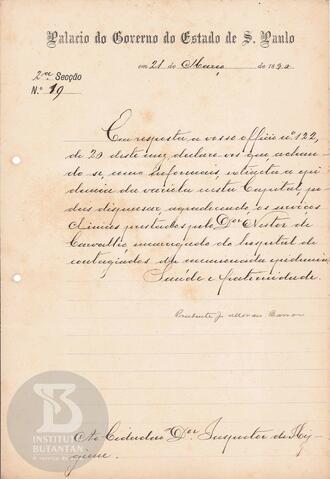 Palacio do Governo do Estado de S. Paulo
em 21 de Março de 1890
2ª Secção
N.º 19
Em resposta a vosso officio nº 122,
de 20 deste mez, declaro-vos que achan-
do-se, como informais, extincta a epi-
demia da variola nesta Capital, po-
deis dispensar, agradecendo, os serviços
clinicos prestados pelo Dor Nestor de
Carvalho, encarregado do Hospital de
contagiados da mencionada epidemia.
Saúde e fraternidade.
Prudente J. de Moraes Barros
Ao Cidadão Dor Inspector de Hy-
giene.
INSTITUTO
BUTANTAN
A serviço da vida